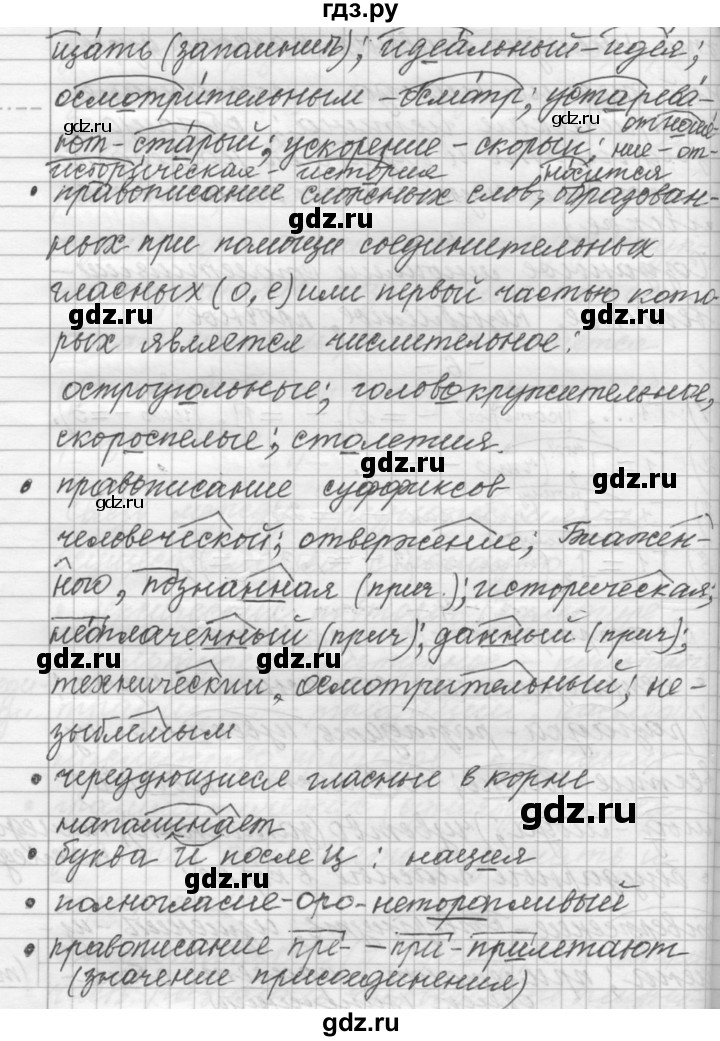 гдз.ру
щать (запомнить); идеальный - идея;
осмотрительным - осмотр; устарева-
gdz.ru gdz.ru
ют - старый; ускорение - скорый; отноше-
ние - от-
историческая - история носится
• правописание сложных слов, образован-
gdz.ru
ных при помощи соединительных
гласных (о, е) или первой частью кото
gdz.ru gdz.ru
рых является числительное:
остроугольные; головокружительное,
скороспелые; столетия.
gdz.ru gdz.ru
• правописание суффиксов
gdz.ru
человеческой; отвержение; Блажен-
ного, познанная (прич.); историческая;
неоплаченный (прич); данный (прич);
gdz.ru gdz.ru
технический, осмотрительный; не-
зыблемым
• чередующиеся гласные в корне
напоминает
gdz.ru
• буква И после Ц: нация
gdz.ru
• полногласие - оро - неторопливый
• правописание пре- - при- прилетают
(значение присоединения)
gdz.ru gdz.ru
gdz.ru